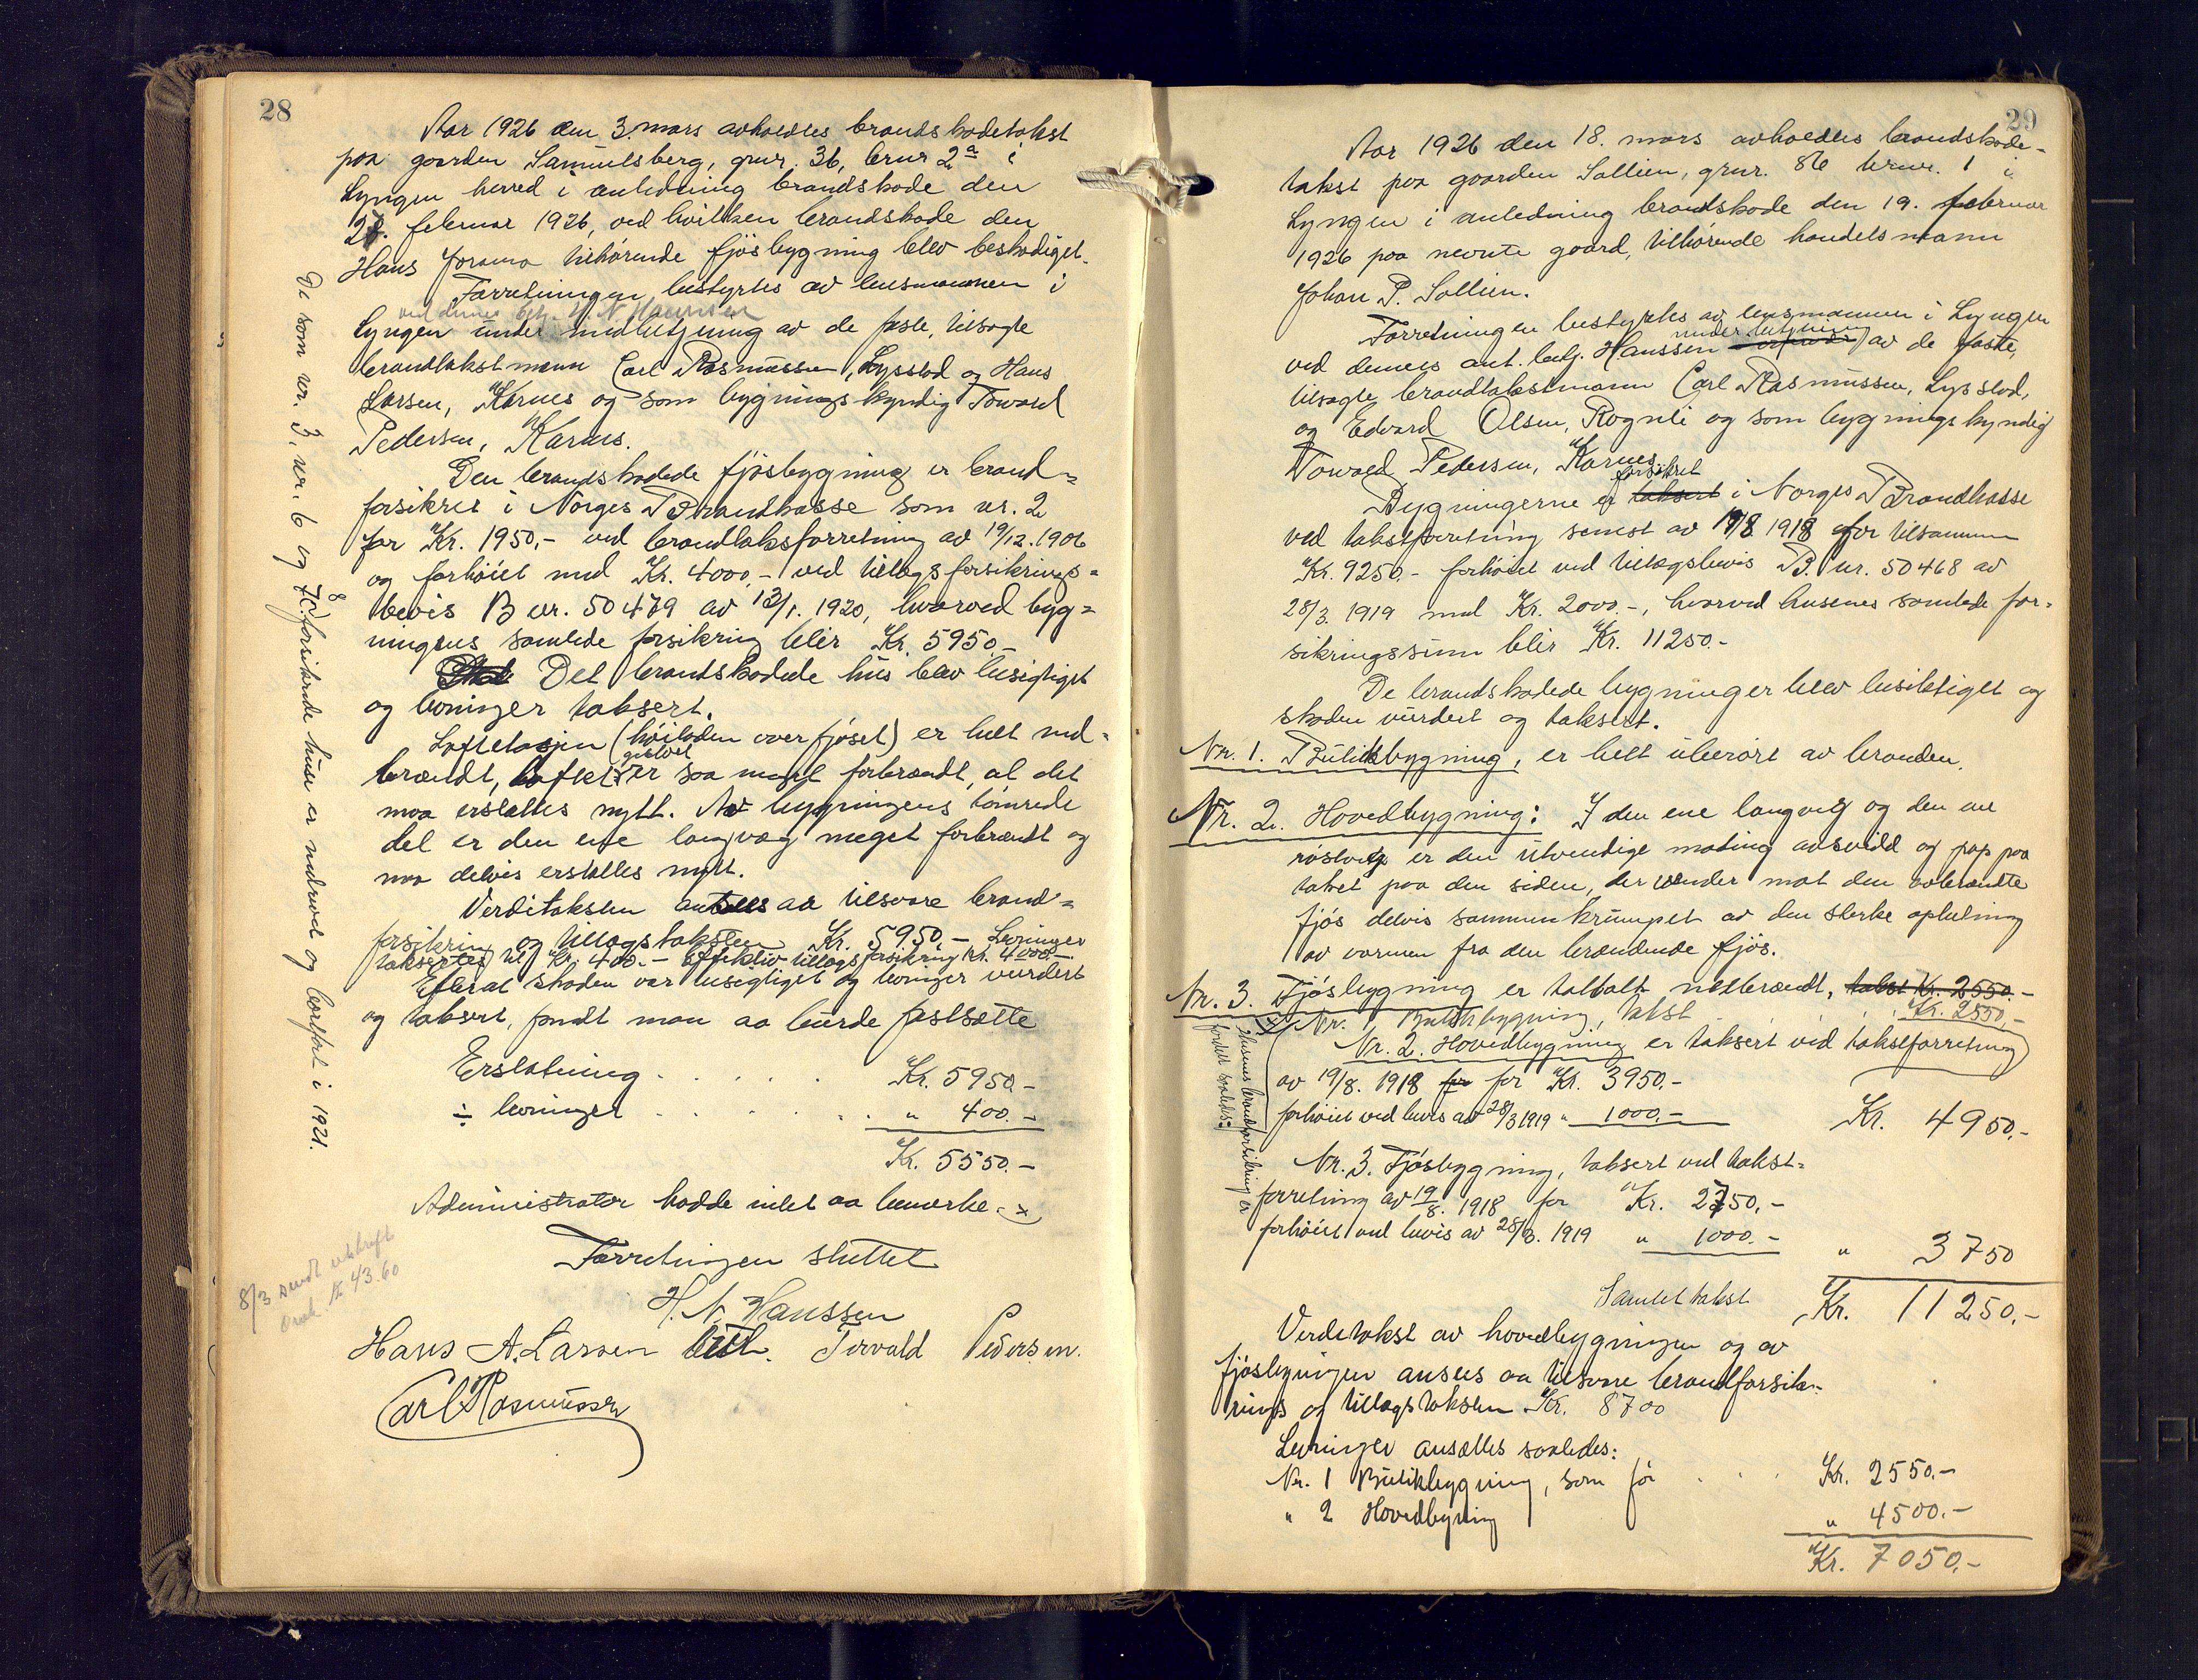 28
Aar 1926 den 3. mars avholdtes brandskadetakst
paa gaarden Samuelsberg, gnr. 36, brnr 2a i
Lyngen herred i anledning brandskade den
28. februar 1926, ved hvilken brandskade den
Hans Jorama tilhørende fjøsbygning blev beskadiget.
Forretningen bestyrtes av lensmannen i
ved dennes btj. H. N. Hanssen
Lyngen under medbetjening av de faste, tilsagte
brandtakstmenn Carl Rasmussen, Lysstad og Hans
Larsen, Karnes og som bygningskyndig Torvard
Pedersen, Karnes.
Den brandskadede fjøsbygning er brand=
forsikret i Norges Brandkasse som nr. 2
for Kr. 1950,- ved brandtakstforretning av 19/12.1906
og forhøiet med Kr. 4000,- ved tillægsforsikrings=
bevis B nr. 50479 av 13/1. 1920, hvorved byg=
ningens samlede forsikring blir Kr. 5950.-
Det brandskadede hus blev besigtiget
og levninger taksert.
Loftetasjen (høiladen over fjøset) er helt ned=
gulvet
brændt, loftet er saa meget forbrændt, at det
maa erstattes nytt. Av bygningens tømrede
del er den ene langvæg meget forbrændt og
maa delvis erstattes nytt.
Verditaksten antaes aa tilsvare brand=
forsikring og tillægstaksten Kr. 5950,- Levninger
taksertes til Kr. 400.- Effektiv tillægsforsikring kr. 4000.-
Efterat skaden var besigtiget og levninger vurdert
og taksert, fandt man aa burde fastsætte
Erstatning . . . . . Kr. 5950.-
÷ levninger . . . . . " 400.-
Kr. 5550.-
Administrator hadde intet aa bemerke. x
Forretningen sluttet
H. N. Hanssen
Hans A. Larsen Torvald Pedersen.
Carl Rasmussen
De som nr. 3, nr. 6 og 7 forsikrede huse er nedrevet og bortført i 1921.
8
8/3 sendt utskrift
Kr 43.60
29
Aar 1926 den 18. mars avholdtes brandskade-
takst paa gaarden Sollien, gnr. 86 brnr. 1 i
Lyngen i anledning brandskade den 19. februar
1926 paa nevnte gaard, tilhørende handelsmann
Johan P. Sollien.
Forretningen bestyrtes av lensmannen i Lyngen
under betjening
ved dennes aut. betj. Hanssen av de faste,
tilsagte brandtakstmenn Carl Rasmussen, Lysstad,
og Edvard Olsen, Rognli og som bygningskyndig
Torvald Pedersen, Karnes.
forsikret
Bygningerne er taksert i Norges Brandkasse
ved takstforretning senest av 19/8 1918 for tilsammen
Kr. 9250.- forhøiet ved tillægsbevis B. nr. 50468 av
28/3. 1919 med Kr. 2000.-, hvorved husenes samlede for=
sikringssum blir Kr. 11250.-
De brandskadede bygninger blev besiktiget og
skaden vurdert og taksert.
Nr. 1. Butikbygning, er helt uberørt av branden.
Nr. 2. Hovedbygning: I den ene langveg og den ene
røstveg er den utvendige maling avsvidd og pap paa
taket paa den siden, der vender mot den avbrændte
fjøs delvis sammenkrumpet av den sterke ophetning
av varmen fra den brændende fjøs.
Nr. 3. Fjøsbygning er totalt nedbrændt, takst Kr. 2550.-
Nr. 1 Butikbygning, takst . . . . Kr. 2550,-
Nr. 2. Hovedbygning er taksert ved takstforretning
av 19/8. 1918 for for Kr. 3950.-
forhøiet ved bevis av 28/3 1919 " 1000.- Kr. 4950,-
Nr. 3. Fjøsbygning, taksert ved takst=
forretning av 19/8. 1918 for Kr. 2750,-
forhøiet ved bevis av 28/3. 1919 " 1000.- " 3750
Samlet takst Kr. 11250,-
Husenes brandforsikring er
fordelt saaledes:
Verdetakst av hovedbygningen og av
fjøsbygningen ansees aa tilsvare brandforsik-
rings og tillægstaksten Kr. 8700
Levninger ansættes saaledes:
Nr. 1 Butikbygning, som før . . . Kr. 2550.-
" 2 Hovedbygning " 4500.-
Kr. 7050,-